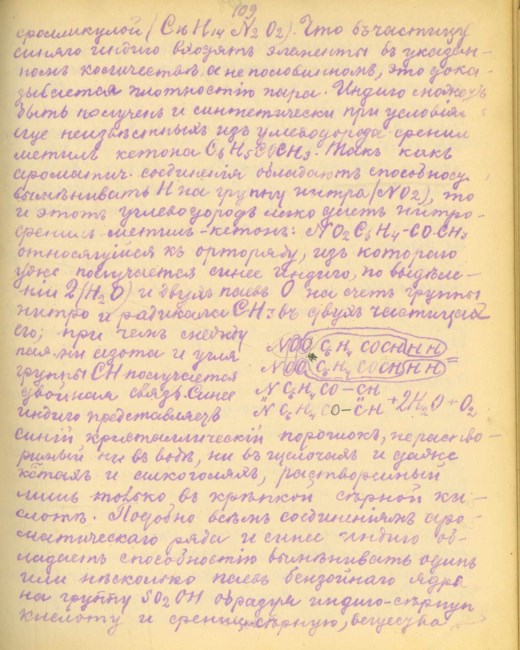 109
формулой (C16H14N2O2). Что въ частицу
синяго индиго входятъ элементы въ указан-
номъ количествѣ, а не половинномъ, это дока-
зывается плотностію пара. Индиго можетъ
быть полученъ и синтетически при условіяхъ
еще неизвѣстныхъ изъ углеводорода фенил
метил кетона C6H5COCH3. Такъ какъ
ароматич. соединенія обладаютъ способностью
вымѣнивать H на группу нитра (NO2), то
и этотъ углеводородъ легко даетъ нитро-
фенил-метил-кетонъ: NO2C6H4-COCH3
относящійся къ орторяду, изъ котораго
уже получается синее индиго, по выдѣле-
ніи 2(H2O) и двухъ паевъ O на счетъ группы
нитро и радикала CH3 въ двухъ частицахъ
его; при чемъ между
паями азота и угля
группы CH получается
двойная связь. Синее
индиго представляетъ
NOO C6H4 COCHHH
NOO C6H4 COCHHH =
N C6H4 CO-CH
N C6H4 CO-CH + 2H2O + O2
синій кристаллическій порошокъ, нераство-
римый ни въ водѣ, ни въ щелочахъ и даже
и алкоголяхъ, растворимый
лишь только въ крѣпкой сѣрной ки-
слотѣ. Подобно всѣмъ соединеніямъ аро-
матическаго ряда и синее индиго об-
ладаетъ способностію вымѣнивать одинъ
или нѣсколько паевъ бензойнаго ядра
на группу SO2OH образуя индиго-сѣрную
кислоту и сѣрную, вещества